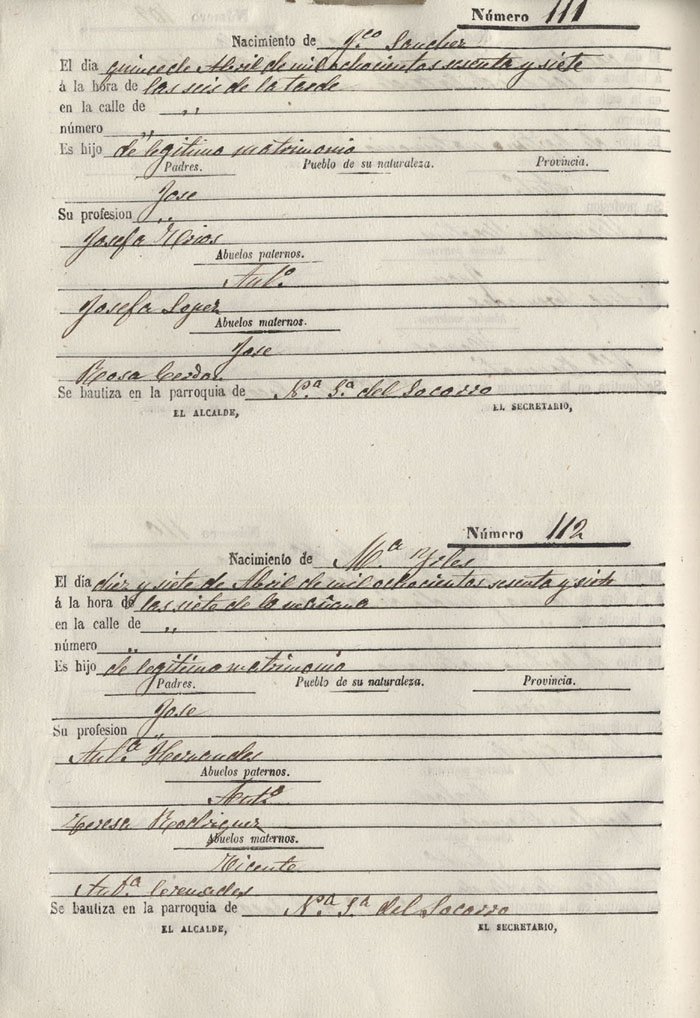 Número 111
Nacimiento de Fco Sanchez
El dia quince de Abril de mil ochocientos sesenta y siete
á la hora de las seis de la tarde
en la calle de ,,
número ,,
Es hijo de legitimo matrimonio
Padres. Pueblo de su naturaleza. Provincia.
Jose
Su profesion ,,
Josefa Rios
Abuelos paternos.
Antº
Josefa Lopez
Abuelos maternos.
Jose
Rosa Cerdan
Se bautiza en la parroquia de Nª Sª del Socorro
EL ALCALDE, EL SECRETARIO,
Número 112
Nacimiento de Mª Giles
El dia diez y siete de Abril de mil ochocientos sesenta y siete
á la hora de las siete de la mañana
en la calle de ,,
número ,,
Es hijo de legitimo matrimonio
Padres. Pueblo de su naturaleza. Provincia.
Jose
Su profesion ,,
Antª Hernandes
Abuelos paternos.
Antº
Teresa Rodriguez
Abuelos maternos.
Vicente
Antª
Se bautiza en la parroquia de Nª Sª del Socorro
EL ALCALDE, EL SECRETARIO,